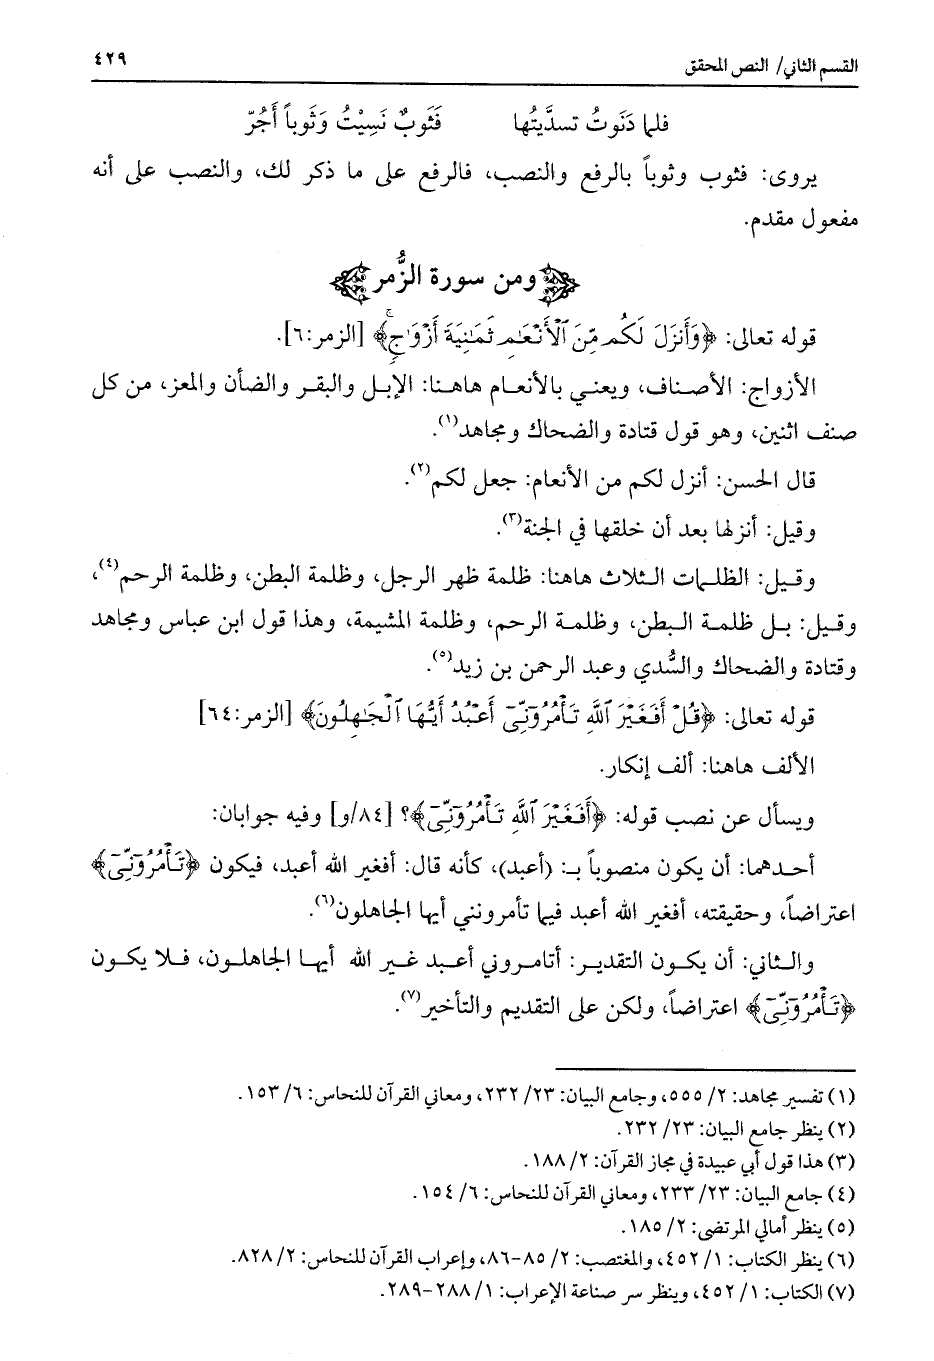 القسم الثاني/ النص المحقق ٤٢٩
فلما دَنَوتُ تسدَّيتُها فَثَوبٌ نَسِيْتُ وَثَوباً أَجُرّ
يروى: فثوب وثوباً بالرفع والنصب، فالرفع على ما ذكر لك، والنصب على أنه
مفعول مقدم.
ومن سورة الزُّمر
قوله تعالى: ﴿وَأَنزَلَ لَكُم مِّنَ ٱلْأَنْعَٰمِ ثَمَٰنِيَةَ أَزْوَٰجٍ﴾ [الزمر:٦].
الأزواج: الأصناف، ويعني بالأنعام هاهنا: الإبل والبقر والضأن والمعز، من كل
صنف اثنين، وهو قول قتادة والضحاك ومجاهد(١).
قال الحسن: أنزل لكم من الأنعام: جعل لكم(٢).
وقيل: أنزلها بعد أن خلقها في الجنة(٣).
وقيل: الظلمات الثلاث هاهنا: ظلمة ظهر الرجل، وظلمة البطن، وظلمة الرحم(٤)،
وقيل: بل ظلمة البطن، وظلمة الرحم، وظلمة المشيمة، وهذا قول ابن عباس ومجاهد
وقتادة والضحاك والسُّدي وعبد الرحمن بن زيد(٥).
قوله تعالى: ﴿قُلْ أَفَغَيْرَ ٱللَّهِ تَأْمُرُوٓنِّىٓ أَعْبُدُ أَيُّهَا ٱلْجَٰهِلُونَ﴾ [الزمر:٦٤]
الألف هاهنا: ألف إنكار.
ويسأل عن نصب قوله: ﴿أَفَغَيْرَ ٱللَّهِ تَأْمُرُوٓنِّىٓ﴾؟ [٨٤/و] وفيه جوابان:
أحدهما: أن يكون منصوباً بـ: (أعبد)، كأنه قال: أفغير الله أعبد، فيكون ﴿تَأْمُرُوٓنِّىٓ﴾
اعتراضاً، وحقيقته، أفغير الله أعبد فيما تأمرونني أيها الجاهلون(٦).
والثاني: أن يكون التقدير: أتامروني أعبد غير الله أيها الجاهلون، فلا يكون
﴿تَأْمُرُوٓنِّىٓ﴾ اعتراضاً، ولكن على التقديم والتأخير(٧).
(١) تفسير مجاهد: ٢/ ٥٥٥، وجامع البيان: ٢٣/ ٢٣٢، ومعاني القرآن للنحاس: ٦/ ١٥٣.
(٢) ينظر جامع البيان: ٢٣/ ٢٣٢.
(٣) هذا قول أبي عبيدة في مجاز القرآن: ٢/ ١٨٨.
(٤) جامع البيان: ٢٣/ ٢٣٣، ومعاني القرآن للنحاس: ٦/ ١٥٤.
(٥) ينظر أمالي المرتضى: ٢/ ١٨٥.
(٦) ينظر الكتاب: ١/ ٤٥٢، والمغتصب: ٢/ ٨٥-٨٦، وإعراب القرآن للنحاس: ٢/ ٨٢٨.
(٧) الكتاب: ١/ ٤٥٢، وينظر سر صناعة الإعراب: ١/ ٢٨٨-٢٨٩.